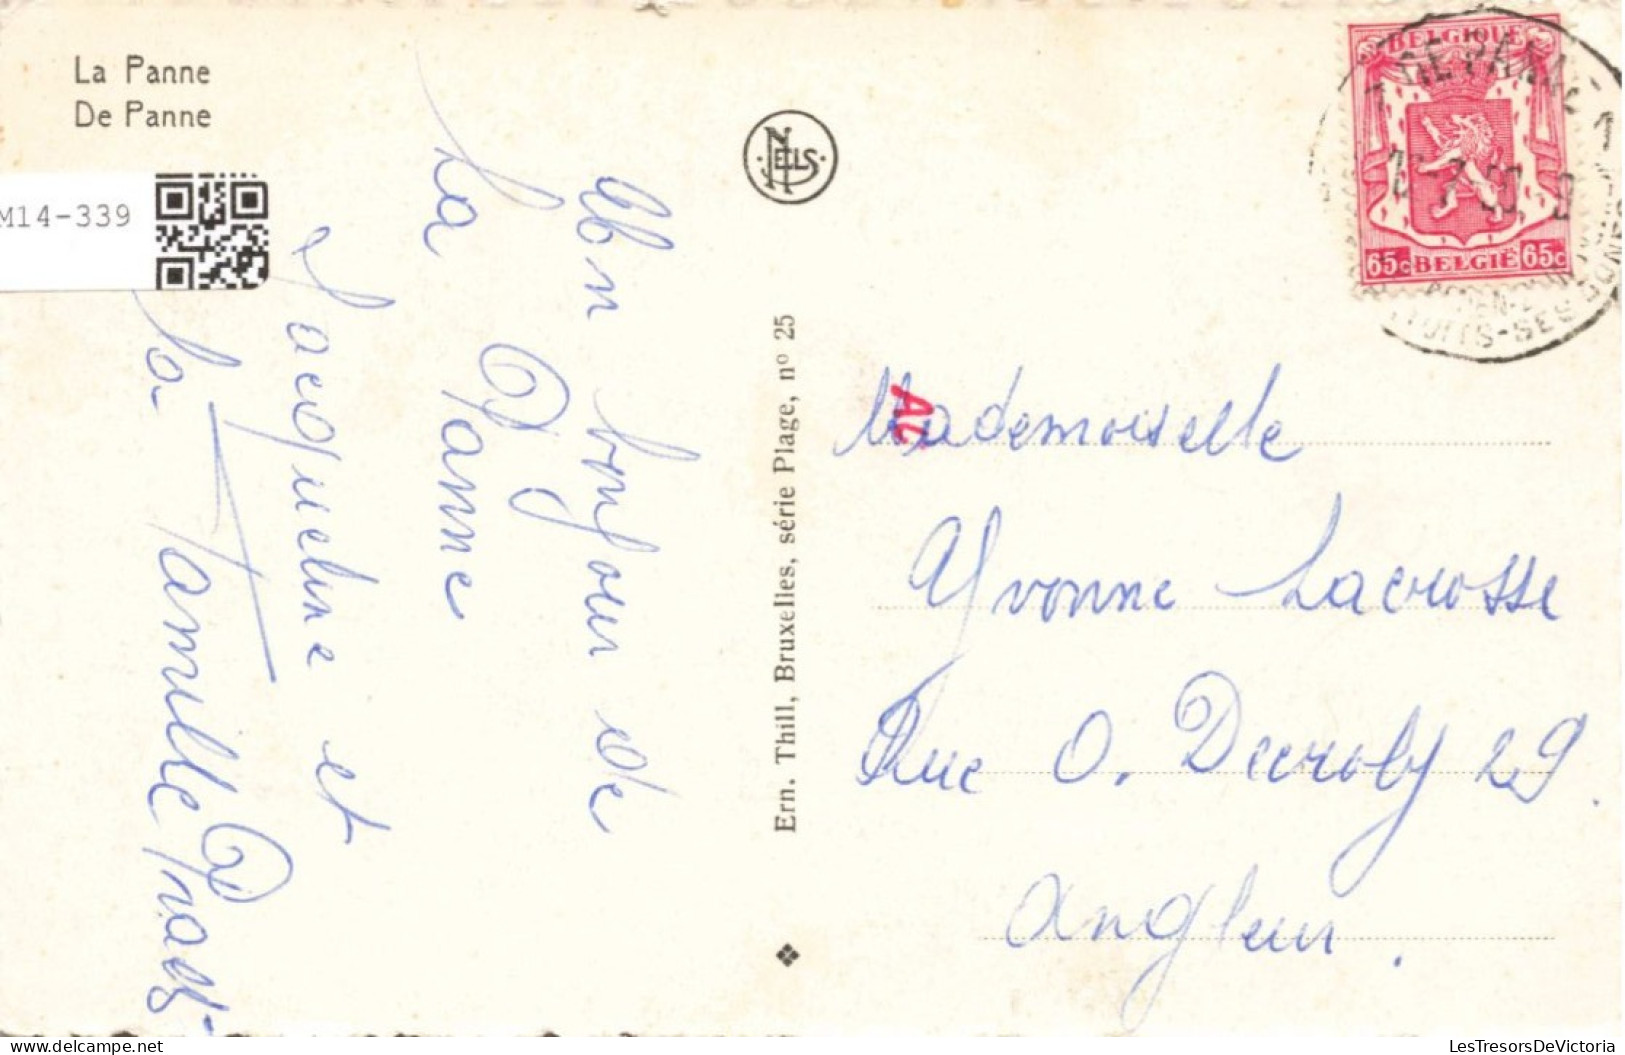 La Panne
De Panne
M14-339
NELS
Un bonjour de
La Panne
Jacqueline et
la Famille
Ern. Thill, Bruxelles, série Plage, nº 25
BELGIQUE
65c BELGIË 65c
DE PANNE 1
AC
Mademoiselle
Yvonne Lacrosse
Rue O. Decroly 29.
Angleur.
LesTresorsDeVictoria